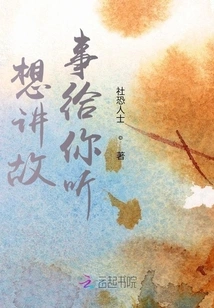 想讲故
事给你听
社恐人士。著
云起书院